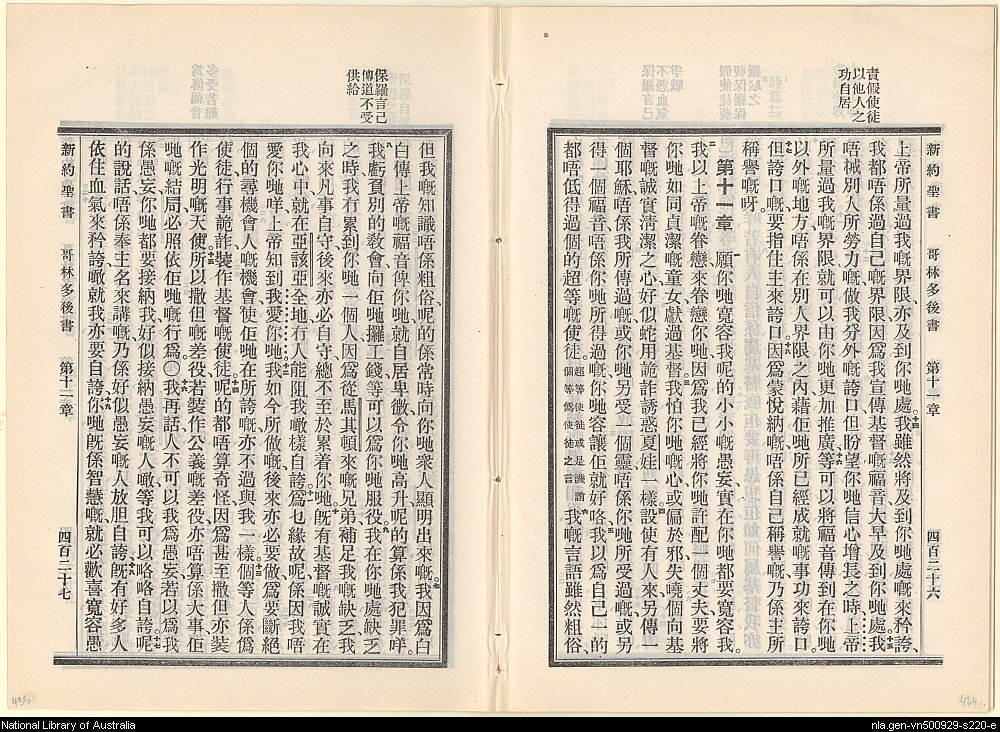 責假使徒
以他人之
功自居
新約聖書 哥林多後書 第十一章 四百二十六
上帝所量過我嘅界限、亦及到你哋處。十四我雖然將及到你哋處嘅來矜誇、
我都唔係過自己嘅界限因爲我宣傳基督嘅福音大早及到你哋處。十五我
唔械別人所勞力嘅、做我分外嘅誇口但盼望你哋信心增長之時、上帝
所量過我嘅界限就可以由你哋更加推廣、十六等可以將福音傳到在你哋
以外嘅地方、唔係在別人界限之內藉佢哋所已經成就嘅事功來誇口。
十七但誇口嘅要指住主來誇口。十八因爲蒙悅納嘅唔係自己稱譽嘅、乃係主所
稱譽嘅呀。
第十一章 一願你哋寬容我呢的小小嘅愚妄、實在你哋都要寬容我。
二我以上帝嘅眷戀來眷戀你哋因爲我已經將你哋許配一個丈夫、要將
你哋如同貞潔嘅童女獻過基督。三我怕你哋嘅心或偏於邪、失嘵個向基
督嘅誠實清潔之心、好似蛇用詭詐誘惑夏娃一樣。四設使有人來另傳一
個耶穌、唔係我所傳過嘅、或你哋另受一個靈唔係你哋所受過嘅、或另
得一個福音、唔係你哋所得過嘅、你哋容讓佢就好咯。五我以爲自己一的
都唔低得過個的超等嘅使徒。超等使徒或是譏誚個等僞使徒之言六我嘅言語雖然粗俗、
保羅言己
傳道不受
供給
但我嘅知識唔係粗俗、呢的係常時向你哋衆人顯明出來嘅。七我因爲白
白傳上帝嘅福音俾你哋、就自居卑微、令你哋高升、呢的算係我犯罪咩。
八我虧負別的敎會、向佢哋攞工錢、等可以爲你哋服役。九我在你哋處缺乏
之時、我冇累到你哋一個人、因爲從馬其頓來嘅兄弟、補足我嘅缺乏、我
向來凡事自守、後來亦必自守、總不至於累着你哋。十旣有基督嘅誠實在
我心中、就在亞該亞全地、冇人能阻我噉樣自誇。十一爲乜緣故呢、係因我唔
愛你哋咩、上帝知到我愛你哋。十二我如今所做嘅、後來亦必要做、爲要斷絕
個的尋機會人嘅機會、使佢哋在所誇嘅、亦不過與我一樣。十三個等人係僞
使徒行事詭詐、裝作基督嘅使徒。十四呢的都唔算奇怪、因爲甚至撒但亦裝
作光明嘅天使。十五所以撒但嘅差役、若裝作公義嘅差役、亦唔算係大事、佢
哋嘅結局、必照依佢哋嘅行爲。〇十六我再話、人不可以我爲愚妄、若以爲我
係愚妄、你哋都要接納我、好似接納愚妄嘅人噉、等我可以略略自誇。十七呢
的說話、唔係奉主名來講嘅、乃係好似愚妄嘅人放胆自誇、十八旣有好多人
依住血氣來矜誇、噉就我亦要自誇。十九你哋旣係智慧嘅、就必歡喜寬容愚
新約聖書 哥林多後書 第十一章 四百二十七
National Library of Australia
nla.gen-vn500929-s220-e